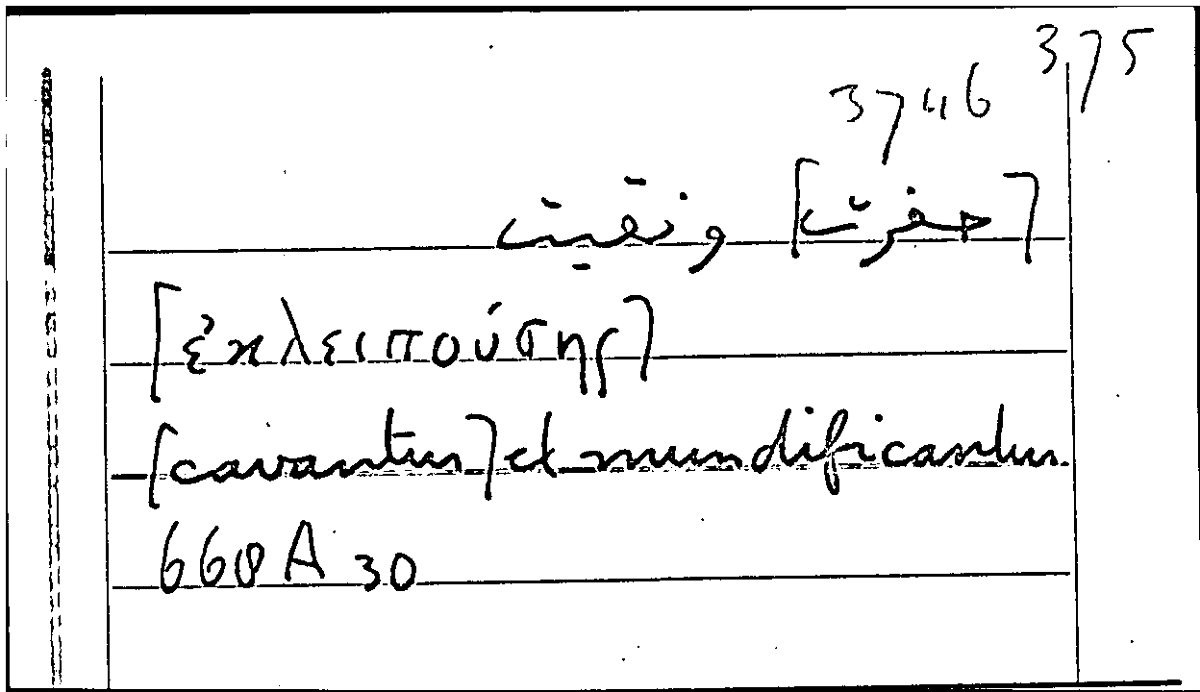 375
3746
[حفرت] ونقيت
[ἐκλειπούσης]
[cavantur] et mundificantur
668 A 30